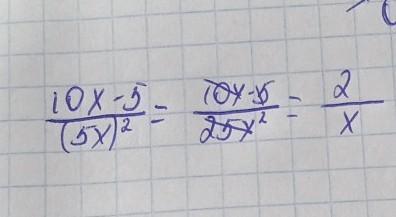 10x-5/(5x)² = 10x-5/25x² = 2/x